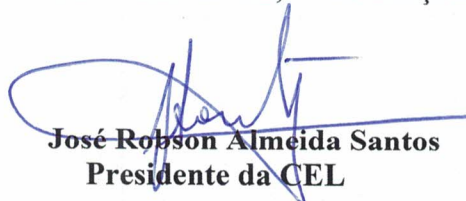 José Robson Almeida Santos
Presidente da CEL